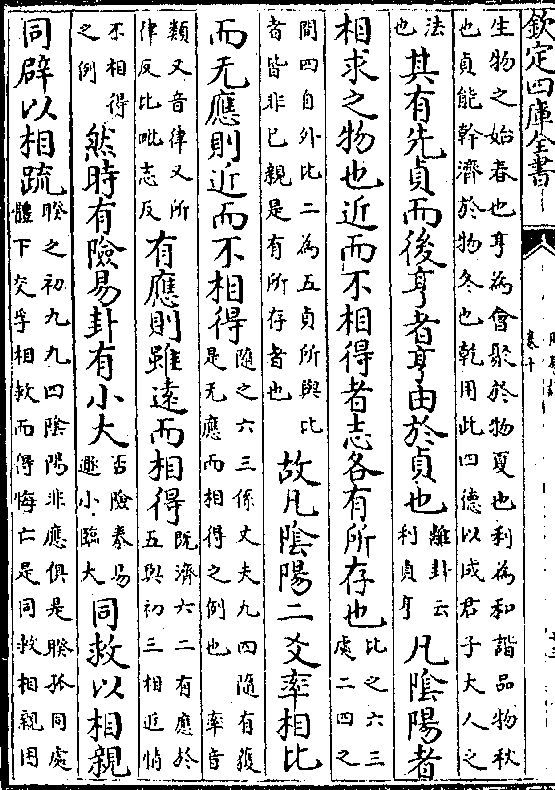 欽定四庫全書
卷十
生物之始春也亨為會聚於物夏也利為和諧品物秋也貞能幹濟於物冬也乾用此四德以成君子大人之
法也其有先貞而後亨者亨由於貞也離卦云利貞亨凡陰陽者
相求之物也近而不相得者志各有所存也比之六三處二四之
間四自外比二為五貞所與比者皆非已親是有所存者也故凡陰陽二爻率相比
而无應則近而不相得隨之六三係丈夫九四隨有獲是无應而相得之例也率音
類又音律又所律反比毗志反有應則雖遠而相得既濟六二有應於五與初三相近情
不相得之例然時有險易卦有小大否險泰易遯小臨大同救以相親
同辟以相疏睽之初九九四陰陽非應俱是睽孤同處體下交孚相救而得悔亡是同救相親困